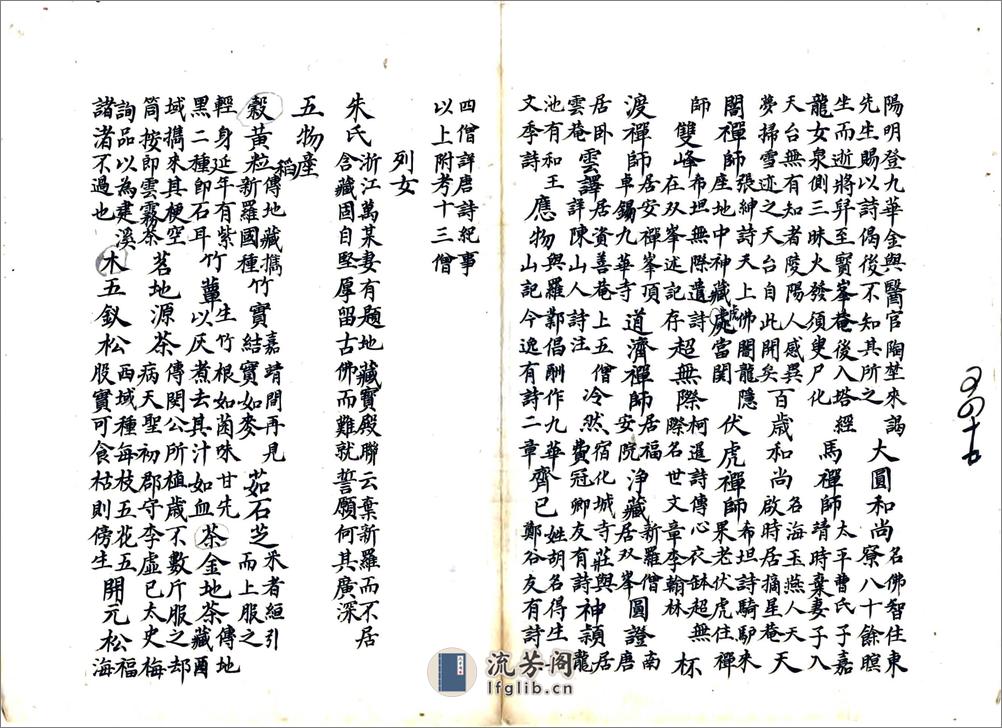 陽明登九華金與醫官陶埜來謁
先生賜以詩偈後不知其所之
大圓和尚
名佛智住東
寮八十餘瞑
生而逝將舁至寶峯菴後入塔經
龍女泉側三昧火發須臾尸化
馬禪師
太平曹氏子嘉
靖時棄妻子入
天台無有知者陵陽人感異
夢掃雪迹之天台自此開矣
百歲和尚
名海玉燕人天
啟時居摘星菴
天
闍禪師
張紳詩天上佛闍龍隱
座地中神藏虎處當関
伏虎禪師
希坦詩騎驴來
果老伏虎住禪
師
雙峰
希坦無際遺詩
在双峯述記存
超無際
柯暹詩傳心衣缽超無
際名世文章李翰林
杯
渡禪師
居安禪峯頂
卓錫九華寺
道濟禪師
居福
安院
淨藏
新羅僧
居双峯
圓證
南
唐
居卧
雲菴
雲譯
居資善菴上五僧
詳陳山人詩注
冷然
宿化城寺莊與
費冠卿友有詩
神穎
居
龍
池有和王
文季詩
應物
與羅鄴倡酬作九華
山記今逸有詩二章
齊已
姓胡名得生
鄭谷友有詩一
四僧詳唐詩紀事
以上附考十三僧
列女
朱氏
浙江萬某妻有題地藏寶殿聯云棄新羅而不居
含藏固自堅厚留古佛而難就誓願何其廣深
五物產
穀
黃粒稻
傳地藏攜
新羅國種
竹實
嘉靖間再見
結實如麥
茹石芝
采者絙引
而上服之
輕身延年有紫
黑二種即石耳
竹蕈
生竹根如菌味甘先
以灰煮去其汁如血
茶
金地茶
傳地
藏西
域攜來其梗空
筒按即雲霧茶
茗地源茶
傳閔公所植歲不數斤服之却
病天聖初郡守李虛已太史梅
詢品以為建溪
諸渚不過也
木
五釵松
西域種每枝五花五
股實可食枯則傍生
開元松
福
海
流芳阁
lfglib.cn